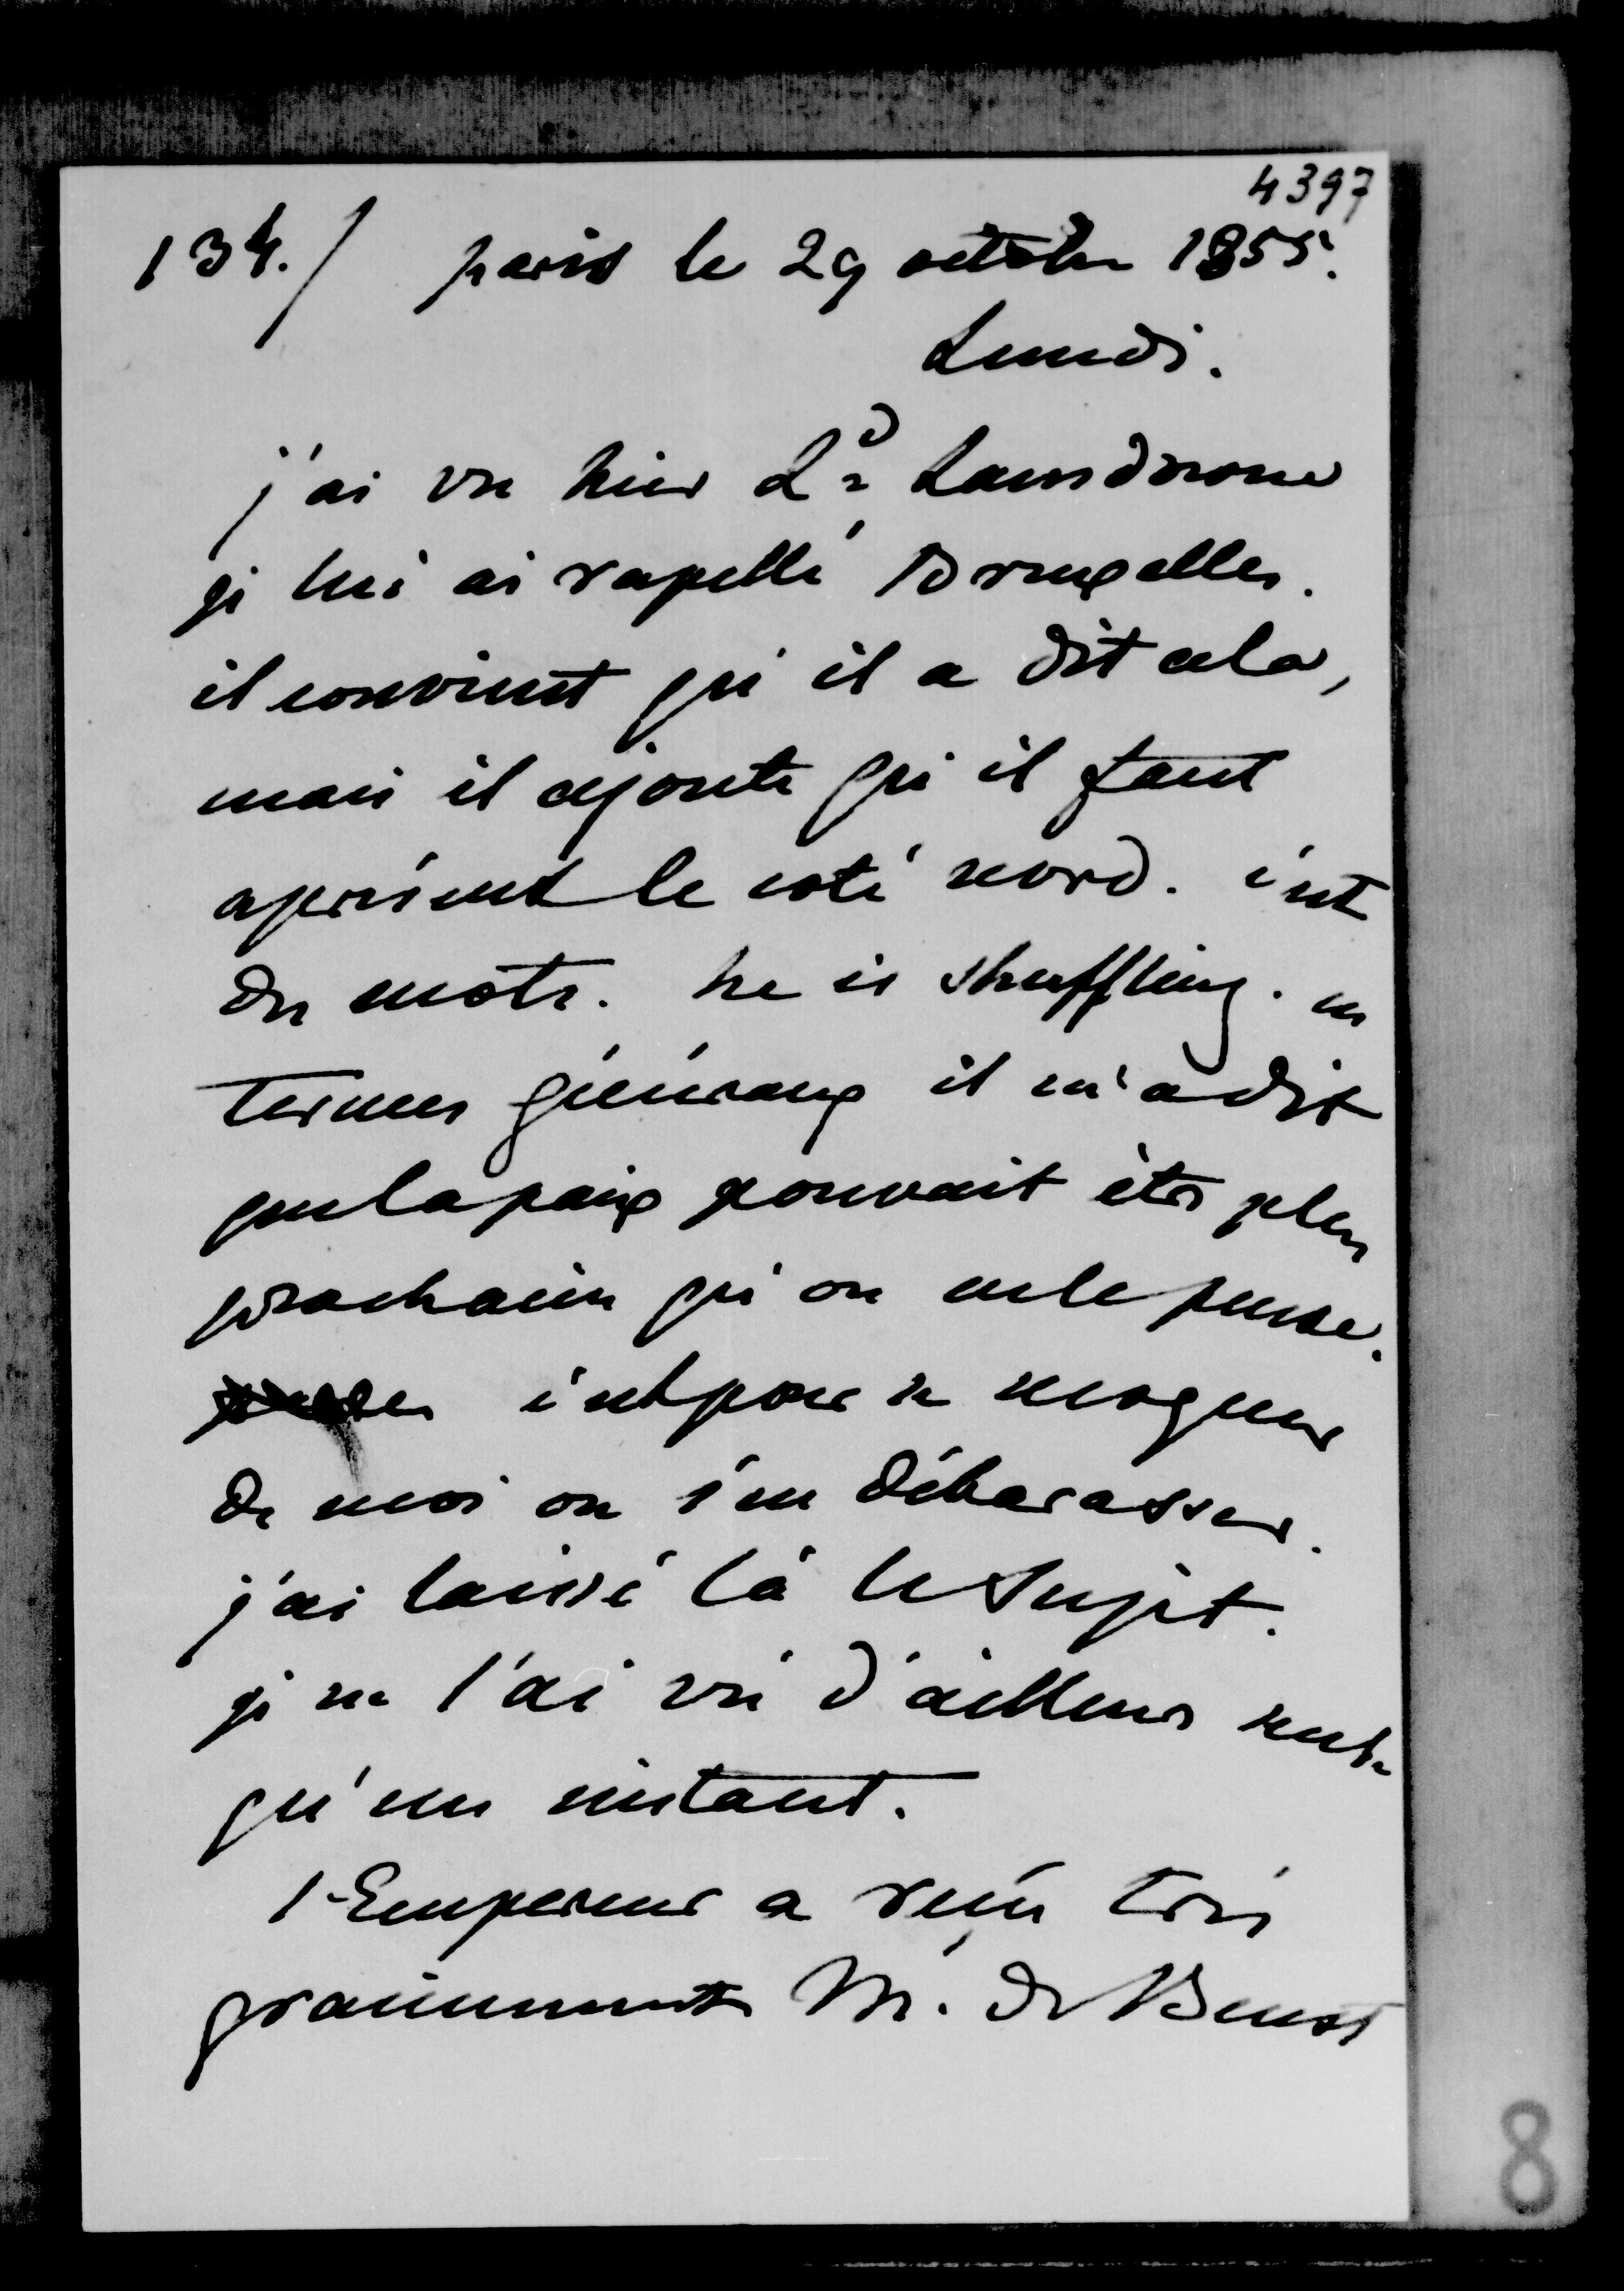 4397
134./ paris le 29 octobre 1855.
Lundi.
j'ai vu hier Ld Lansdowne
je lui ai rapellé Bruxelles.
il convient qu'il a dit cela,
mais il ajoute qu'il faut
aprésent le coté nord. c'est
des mots. he is shuffling. en
termes généraux il m'a dit
que la paix pouvait être plus
prochaine qu'on ne le pense.
c'est pour se moquer
de moi ou s'en débarasser.
j'ai laissé là le sujet.
je ne l'ai vu d'ailleurs
qu'un instant.
l'Empereur a reçu très
gracieusement M. de Beust
8